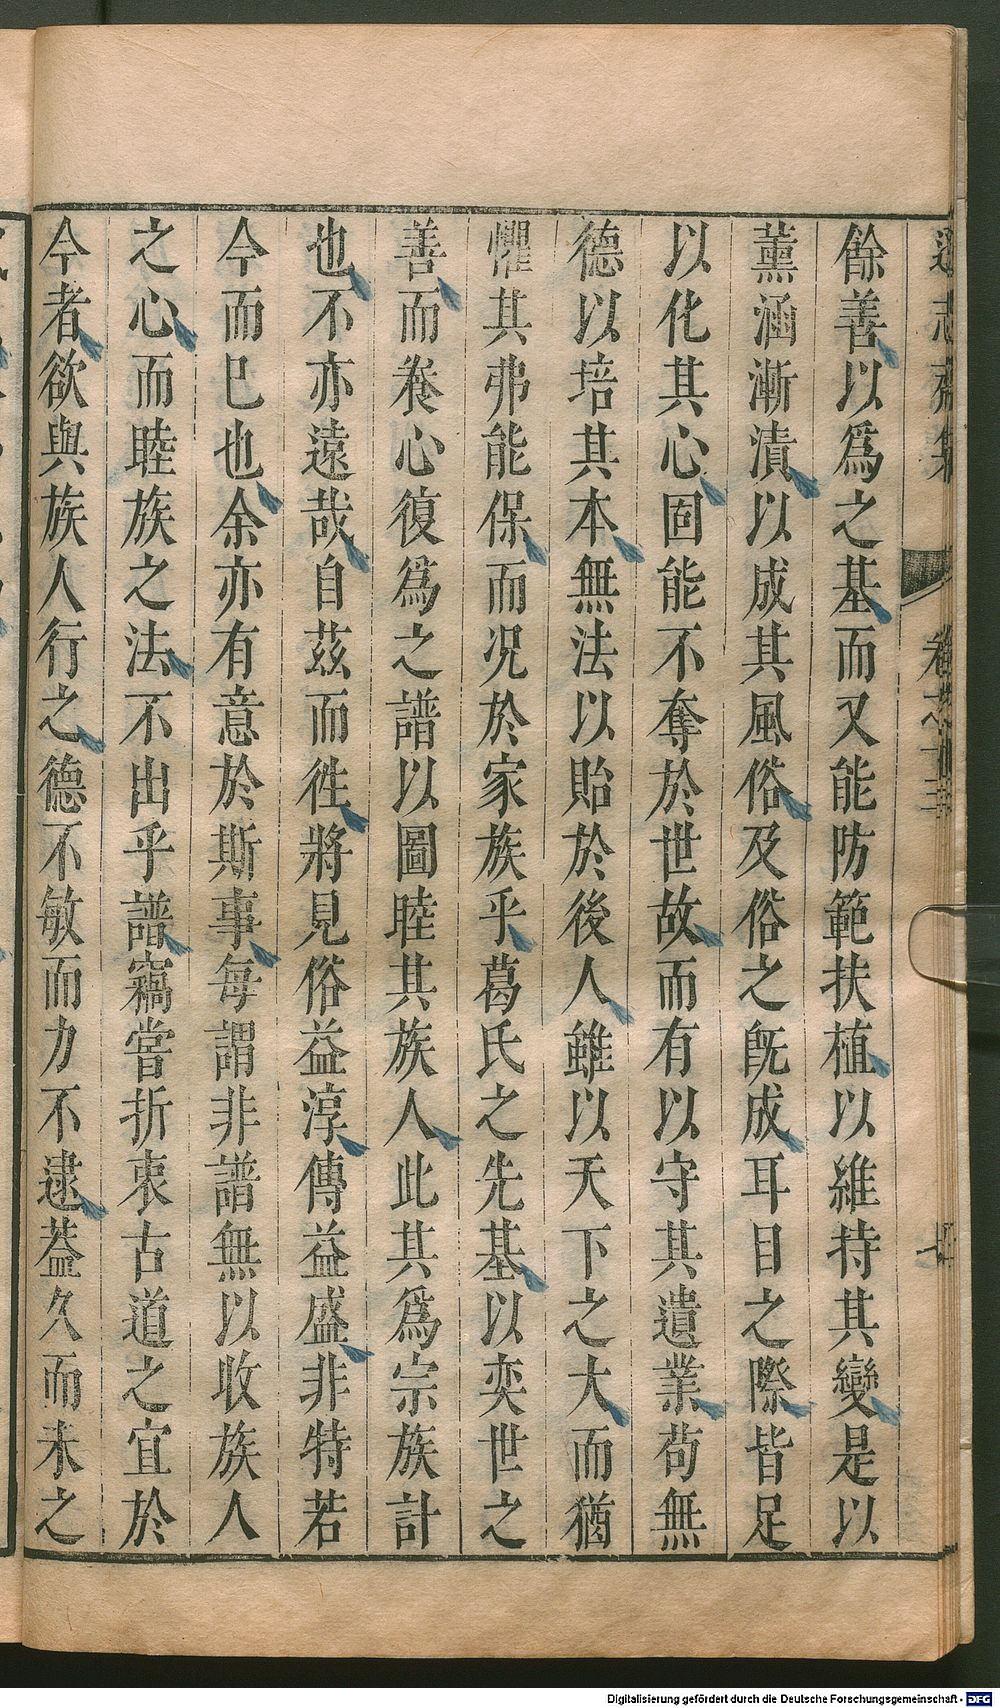 餘善以爲之基而又能防範扶植以維持其變是以
薰涵漸漬以成其風俗及俗之旣成耳目之際皆足
以化其心固能不奪於世故而有以守其遺業苟無
德以培其本無法以貽於後人雖以天下之大而猶
懼其弗能保而况於家族乎葛氏之先基以奕世之
善而養心復爲之譜以圖睦其族人此其爲宗族計
也不亦遠哉自茲而徃將見俗益淳傳益盛非特若
今而巳也余亦有意於斯事每謂非譜無以收族人
之心而睦族之法不出乎譜竊嘗折衷古道之宜於
今者欲與族人行之德不敏而力不逮葢久而未之
Digitalisierung gefördert durch die Deutsche Forschungsgemeinschaft - DFG